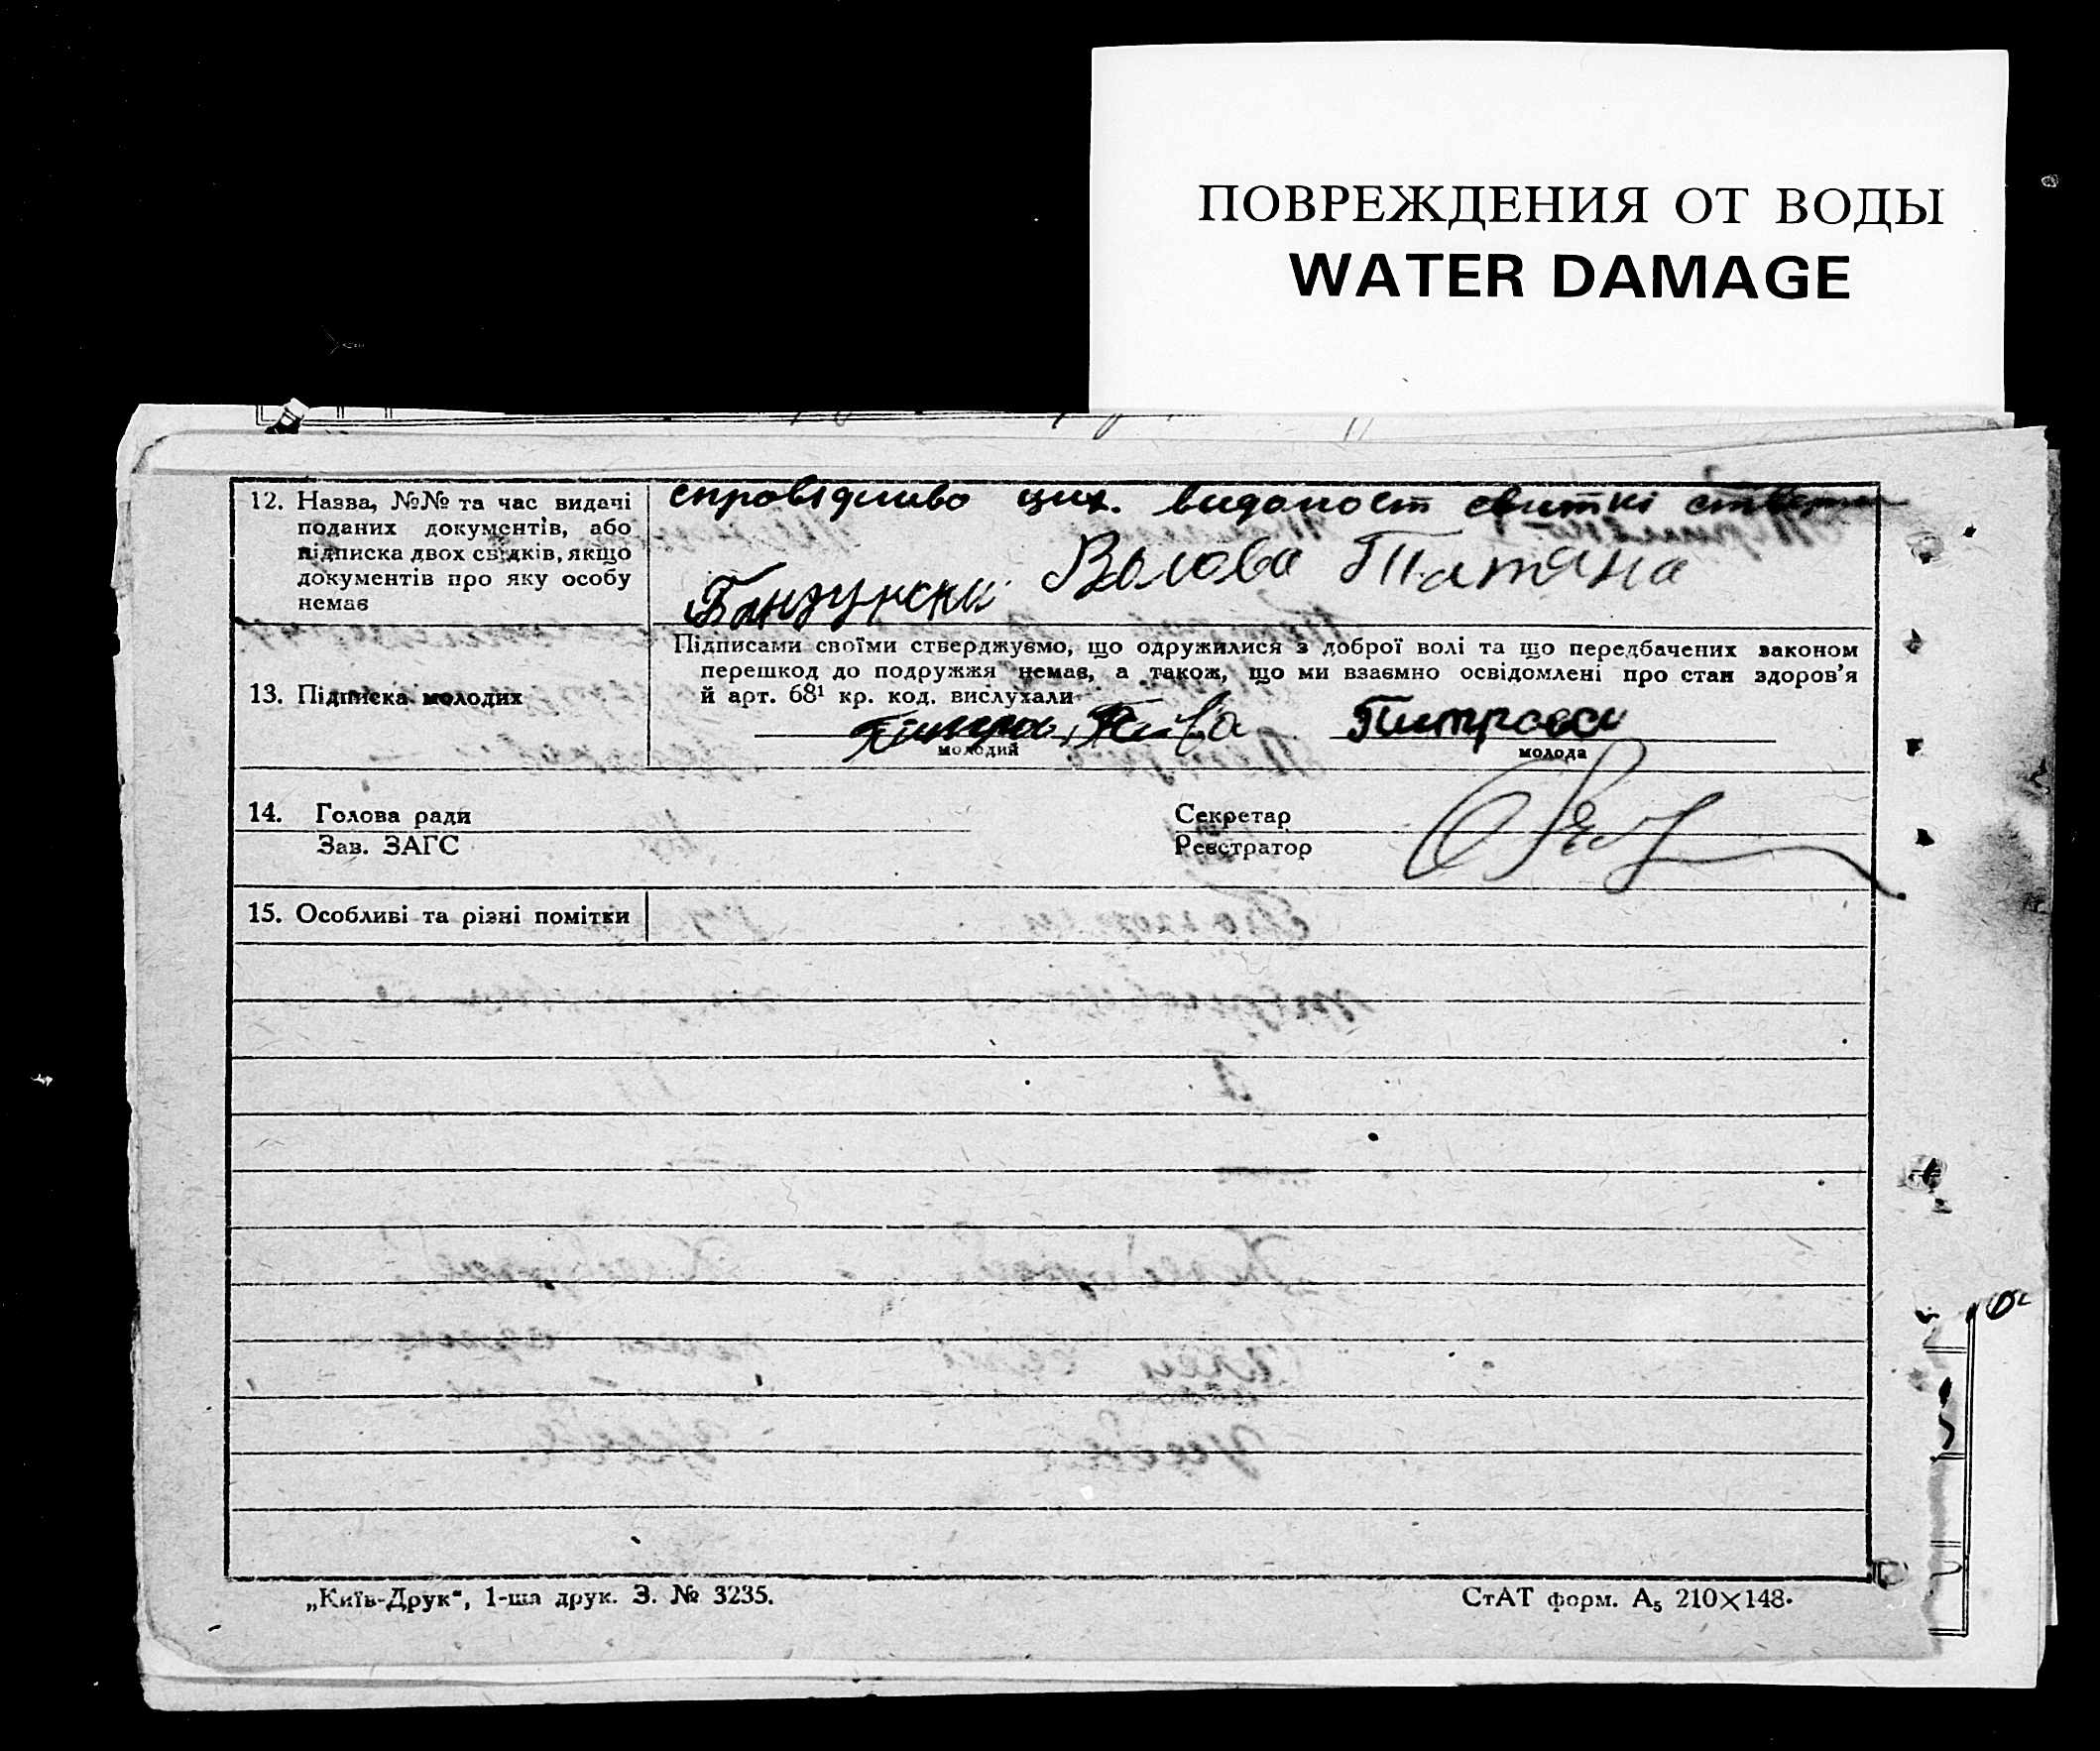 ПОВРЕЖДЕНИЯ ОТ ВОДЫ
WATER DAMAGE
12. Назва, №№ та час видачі
поданих документів, або
підписка двох свідків, якщо
документів про яку особу
немає
справідливо цих. видомост свиткі
Волова Татяна
13. Підписка молодих
Підписами своїми стверджуємо, що одружилися з доброї волі та що передбачених законом
перешкод до подружжя немає, а також, що ми взаємно освідомлені про стан здоров'я
й арт. 68¹ кр. код. вислухали
Питрова
молодий молода
14. Голова ради Секретар
Зав. ЗАГС Реєстратор
15. Особливі та різні помітки
„Київ-Друк“, 1-ша друк. З. № 3235.
СтАТ форм. А₅ 210×148.